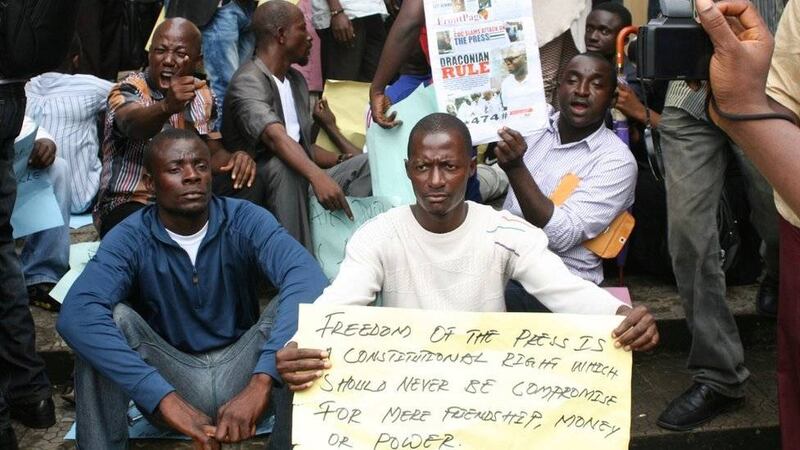 FrontPage
CDC SLAMS ATTACK ON
THE PRESS
DRACONIAN
RULE
474
FREEDOM OF THE PRESS IS
A CONSTITUTIONAL RIGHT WHICH
SHOULD NEVER BE COMPROMISE
FOR MERE FRIENDSHIP, MONEY
OR POWER.